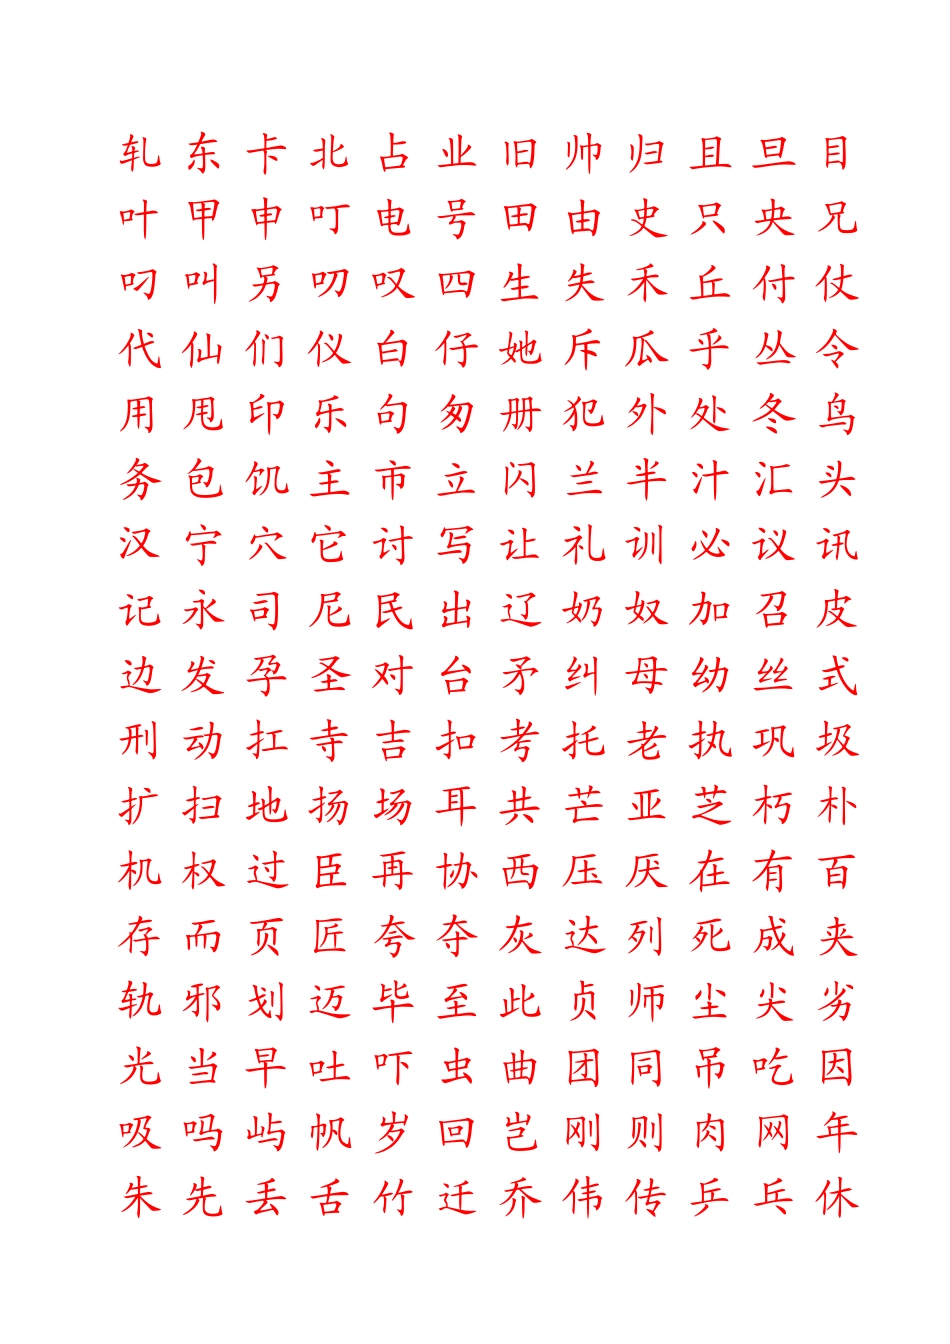 轧 东 卡 北 占 业 旧 帅 归 且 旦 目
叶 甲 申 叮 电 号 田 由 史 只 央 兄
叼 叫 另 叨 叹 四 生 失 禾 丘 付 仗
代 仙 们 仪 白 仔 她 斥 瓜 乎 丛 令
用 甩 印 乐 句 匆 册 犯 外 处 冬 鸟
务 包 饥 主 市 立 闪 兰 半 汁 汇 头
汉 宁 穴 它 讨 写 让 礼 训 必 议 讯
记 永 司 尼 民 出 辽 奶 奴 加 召 皮
边 发 孕 圣 对 台 矛 纠 母 幼 丝 式
刑 动 扛 寺 吉 扣 考 托 老 执 巩 圾
扩 扫 地 扬 场 耳 共 芒 亚 芝 朽 朴
机 权 过 臣 再 协 西 压 厌 在 有 百
存 而 页 匠 夸 夺 灰 达 列 死 成 夹
轨 邪 划 迈 毕 至 此 贞 师 尘 尖 劣
光 当 早 吐 吓 虫 曲 团 同 吊 吃 因
吸 吗 屿 帆 岁 回 岂 刚 则 肉 网 年
朱 先 丢 舌 竹 迁 乔 伟 传 乒 乓 休